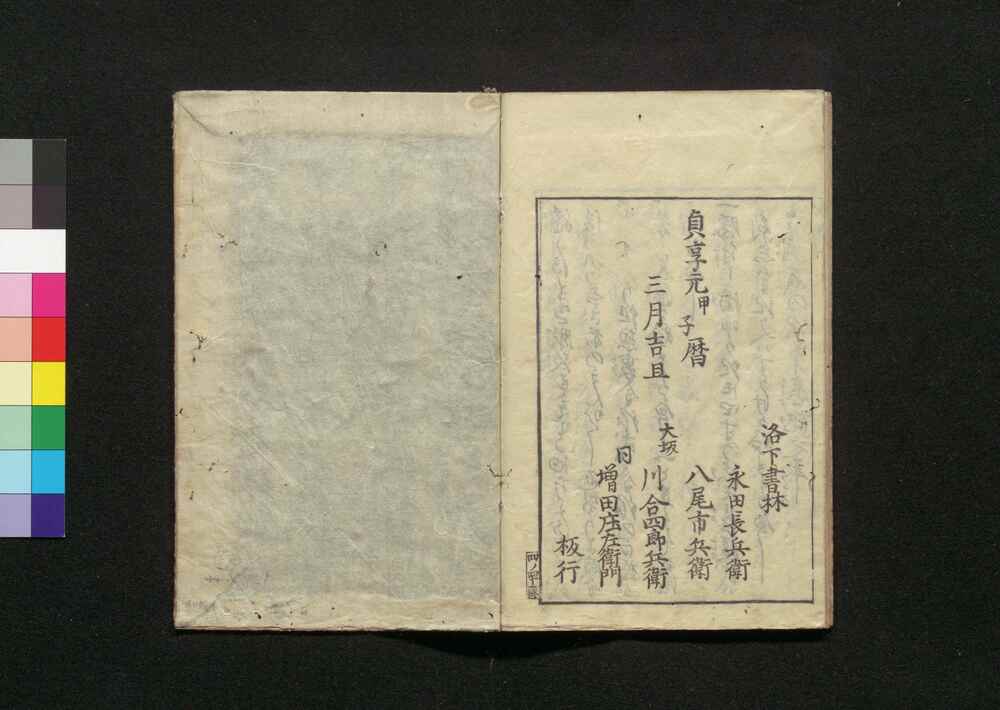 貞享元甲子暦
三月吉旦
洛下書林
永田長兵衛
八尾市兵衛
大坂
川合四郎兵衛
同
増田庄左衛門
板行